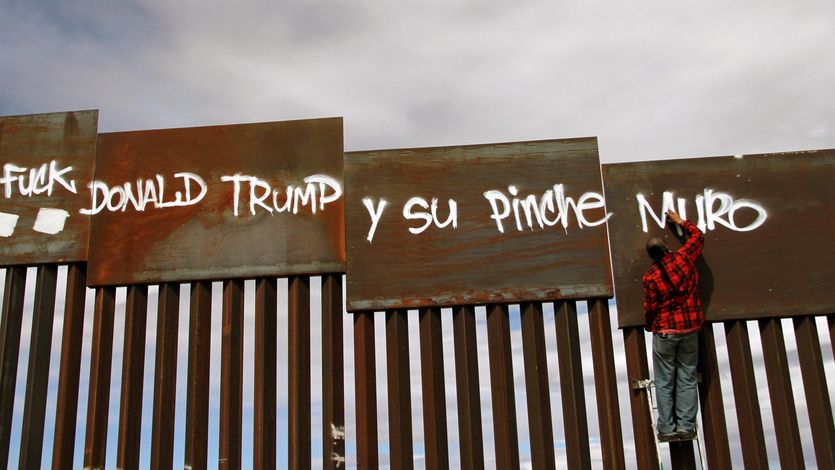 FUCK DONALD TRUMP y su pinche MURO